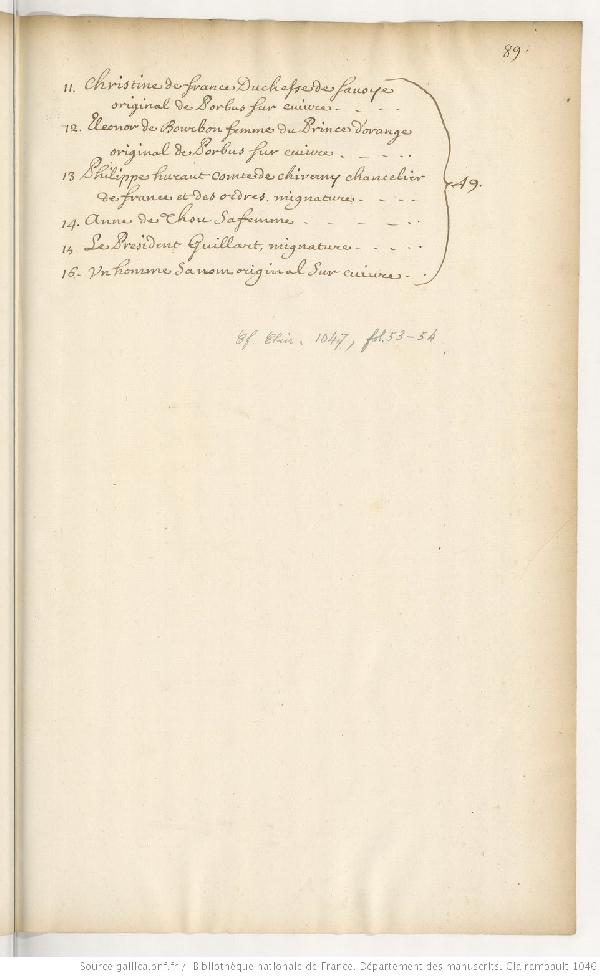 89.
11. Christine de france Duchesse de savoye
original de Porbus sur cuivre . . . .
12. Eleonor de Bourbon femme du Prince d'orange
original de Porbus sur cuivre . . . .
13 Philippe huraut comte de chiverny chancelier
de france et des ordres, mignature . . . .
49.
14. Anne de Thou sa femme . . . . .
15 Le President Guillart, mignature . . . .
16. Un homme sa nom original sur cuivre . .
Cf. Clair. 1047, fol. 53-54
Source gallica.bnf.fr / Bibliothèque nationale de France. Département des manuscrits. Clairembault 1046